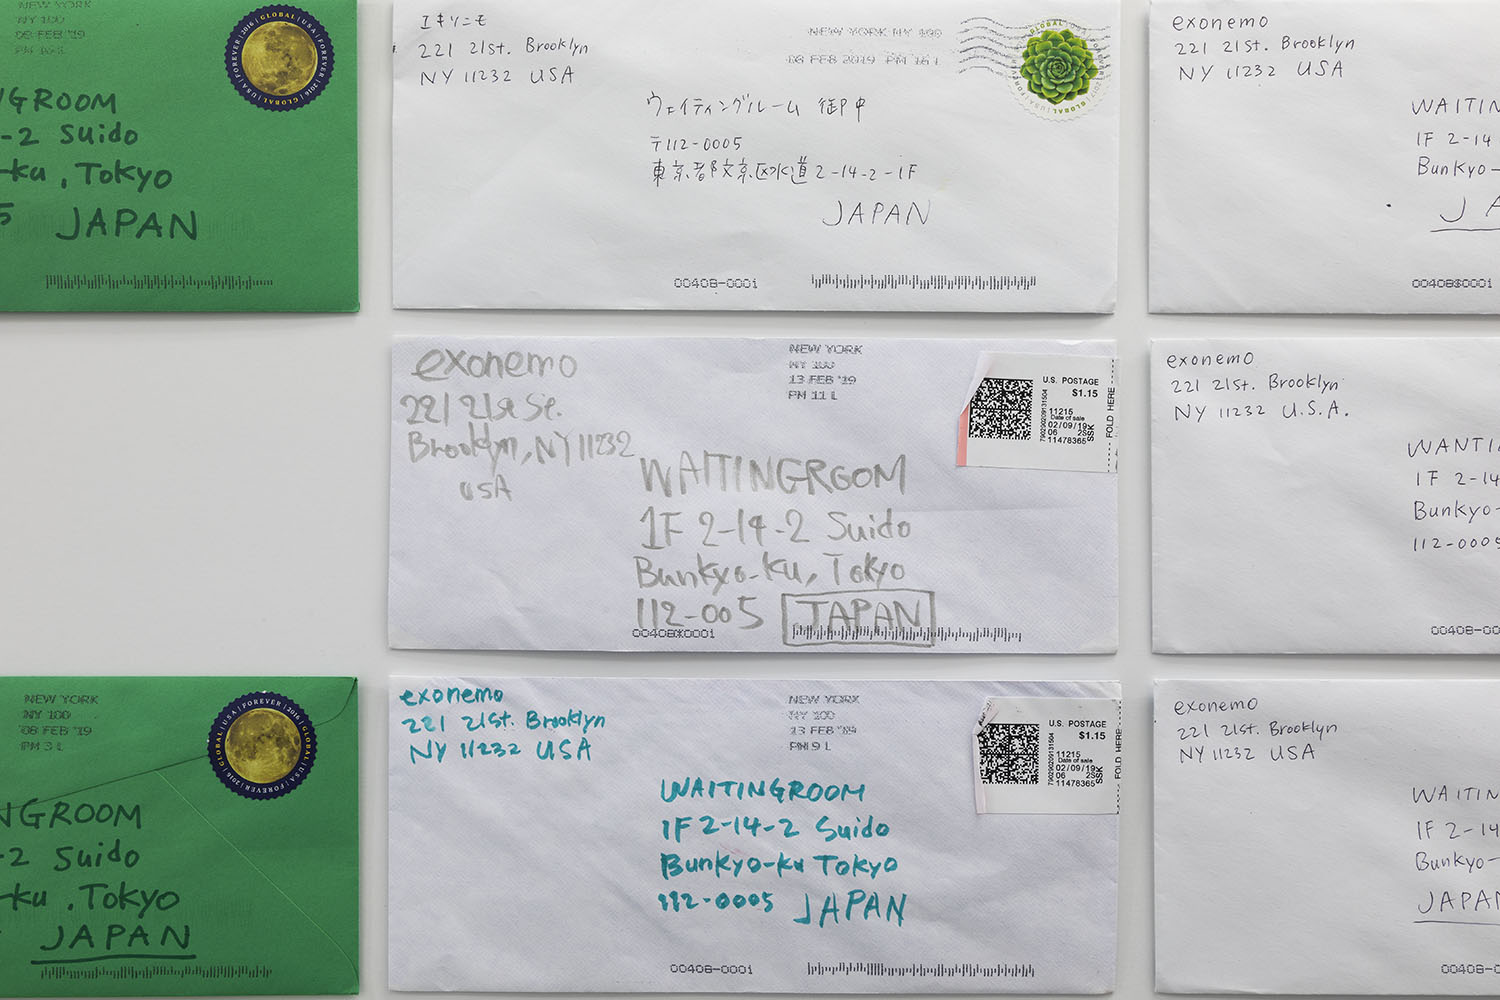 NEW YORK
NY 100
08 FEB '19
GLOBAL | USA | FOREVER | 2016
NGROOM
-2 Suido
-ku, Tokyo
5 JAPAN
エキソニモ
221 21St. Brooklyn
NY 11232 USA
NEW YORK NY 100
08 FEB 2019 PM 16 L
GLOBAL
ウェイティングルーム 御中
〒112-0005
東京都文京区水道2-14-2-1F
JAPAN
00408-0001
exonemo
221 21St. Brooklyn
NY 11232 USA
WAITIN
1F 2-14
Bunkyo-
JA
exonemo
221 21st St.
Brooklyn, NY 11232
USA
NEW YORK
NY 100
13 FEB '19
PM 11 L
U.S. POSTAGE
$1.15
11215
Date of sale
02/09/19
06 2S
11478365
SSK
FOLD HERE
WAITINGROOM
1F 2-14-2 Suido
Bunkyo-ku, Tokyo
112-005 JAPAN
exonemo
221 21St. Brooklyn
NY 11232 U.S.A.
WANTI
1F 2-14
Bunkyo-
112-0005
00408-00
NEW YORK
NY 100
08 FEB '19
PM 3 L
GLOBAL | USA | FOREVER | 2016
NGROOM
-2 Suido
-ku, Tokyo
JAPAN
exonemo
221 21St. Brooklyn
NY 11232 USA
NEW YORK
NY 100
13 FEB '19
PM 9 L
U.S. POSTAGE
$1.15
11215
Date of sale
02/09/19
06 2S
11478365
SSK
FOLD HERE
WAITINGROOM
1F 2-14-2 Suido
Bunkyo-ku Tokyo
112-0005 JAPAN
00408-0001
exonemo
221 21St. Brooklyn
NY 11232 USA
WAITIN
1F 2-14
Bunkyo-
JAPAN
00408-00